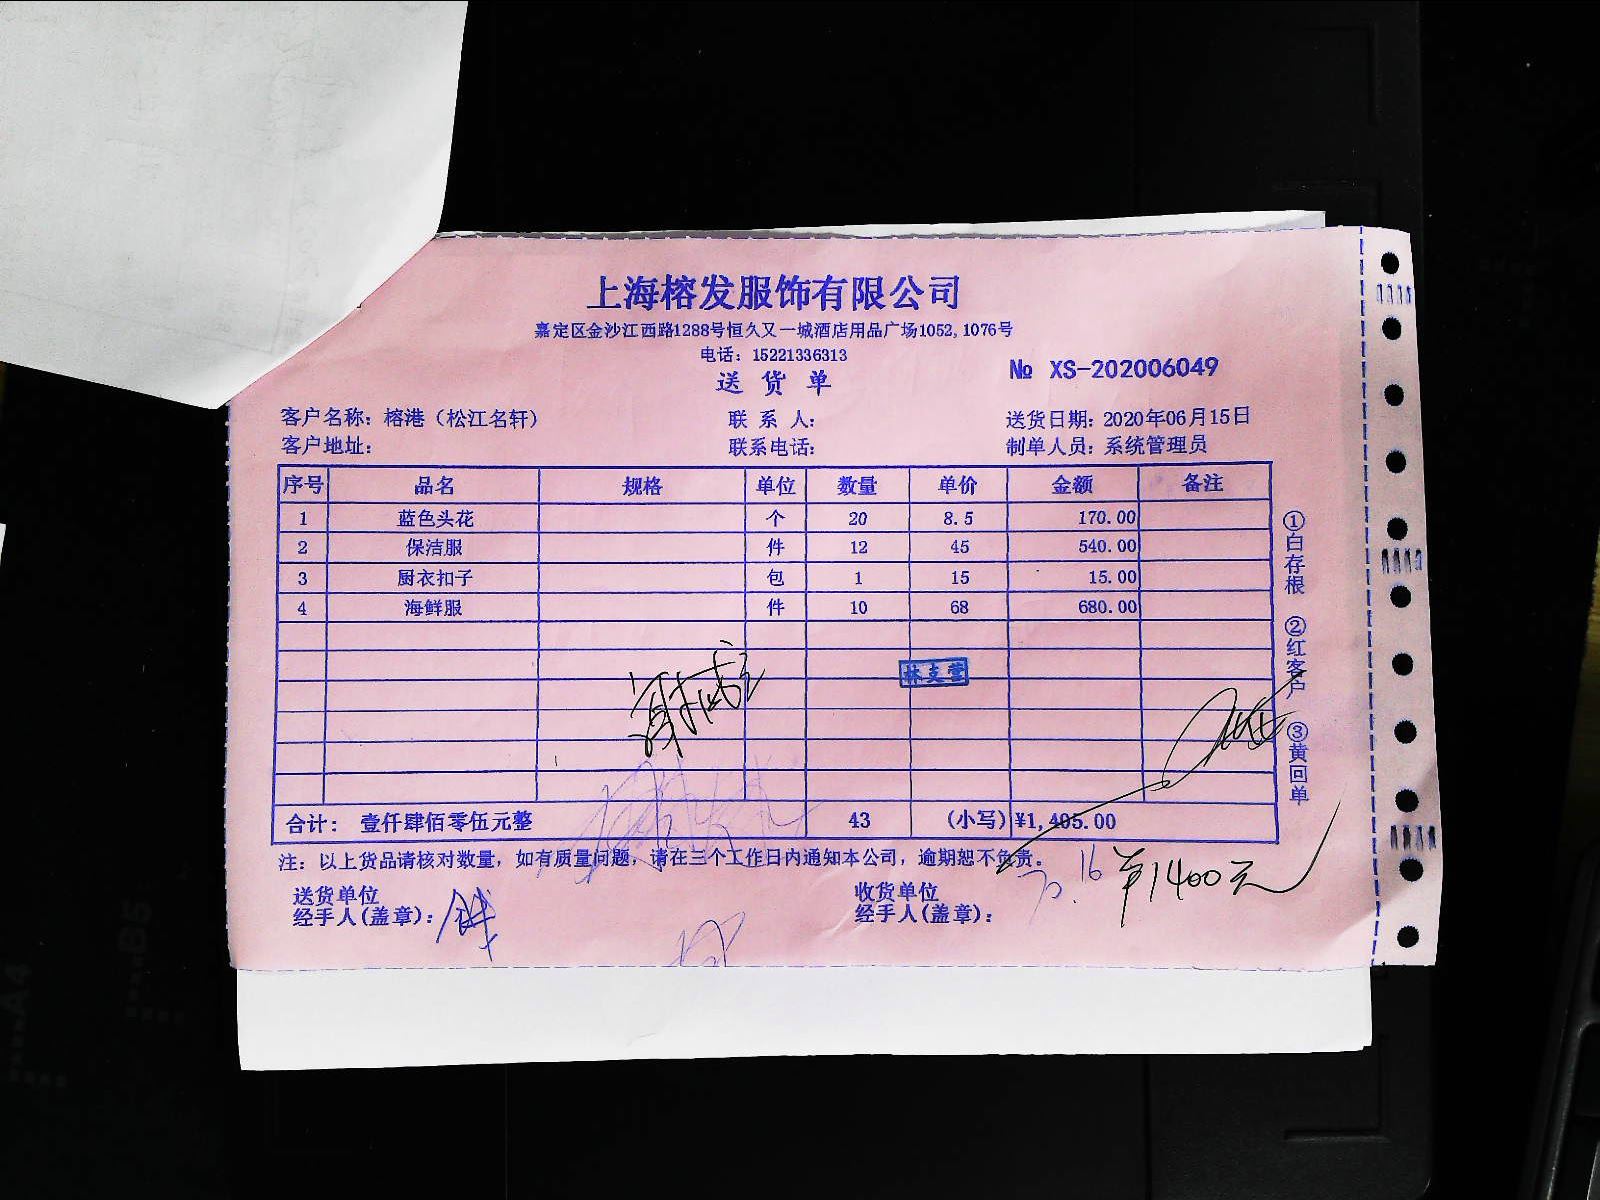 上海榕发服饰有限公司
嘉定区金沙江西路1288号恒久又一城酒店用品广场1052,1076号
电话：15221336313
送货单
№ XS-202006049
客户名称：榕港（松江名轩） 联系人： 送货日期：2020年06月15日
客户地址： 联系电话： 制单人员：系统管理员
序号 品名 规格 单位 数量 单价 金额 备注
1 蓝色头花 个 20 8.5 170.00
2 保洁服 件 12 45 540.00
3 厨衣扣子 包 1 15 15.00
4 海鲜服 件 10 68 680.00
合计： 壹仟肆佰零伍元整 43 (小写) ¥1,405.00
①白存根 ②红客户 ③黄回单
注：以上货品请核对数量，如有质量问题，请在三个工作日内通知本公司，逾期恕不负责。
送货单位 收货单位
经手人(盖章)： 经手人(盖章)：
1400元